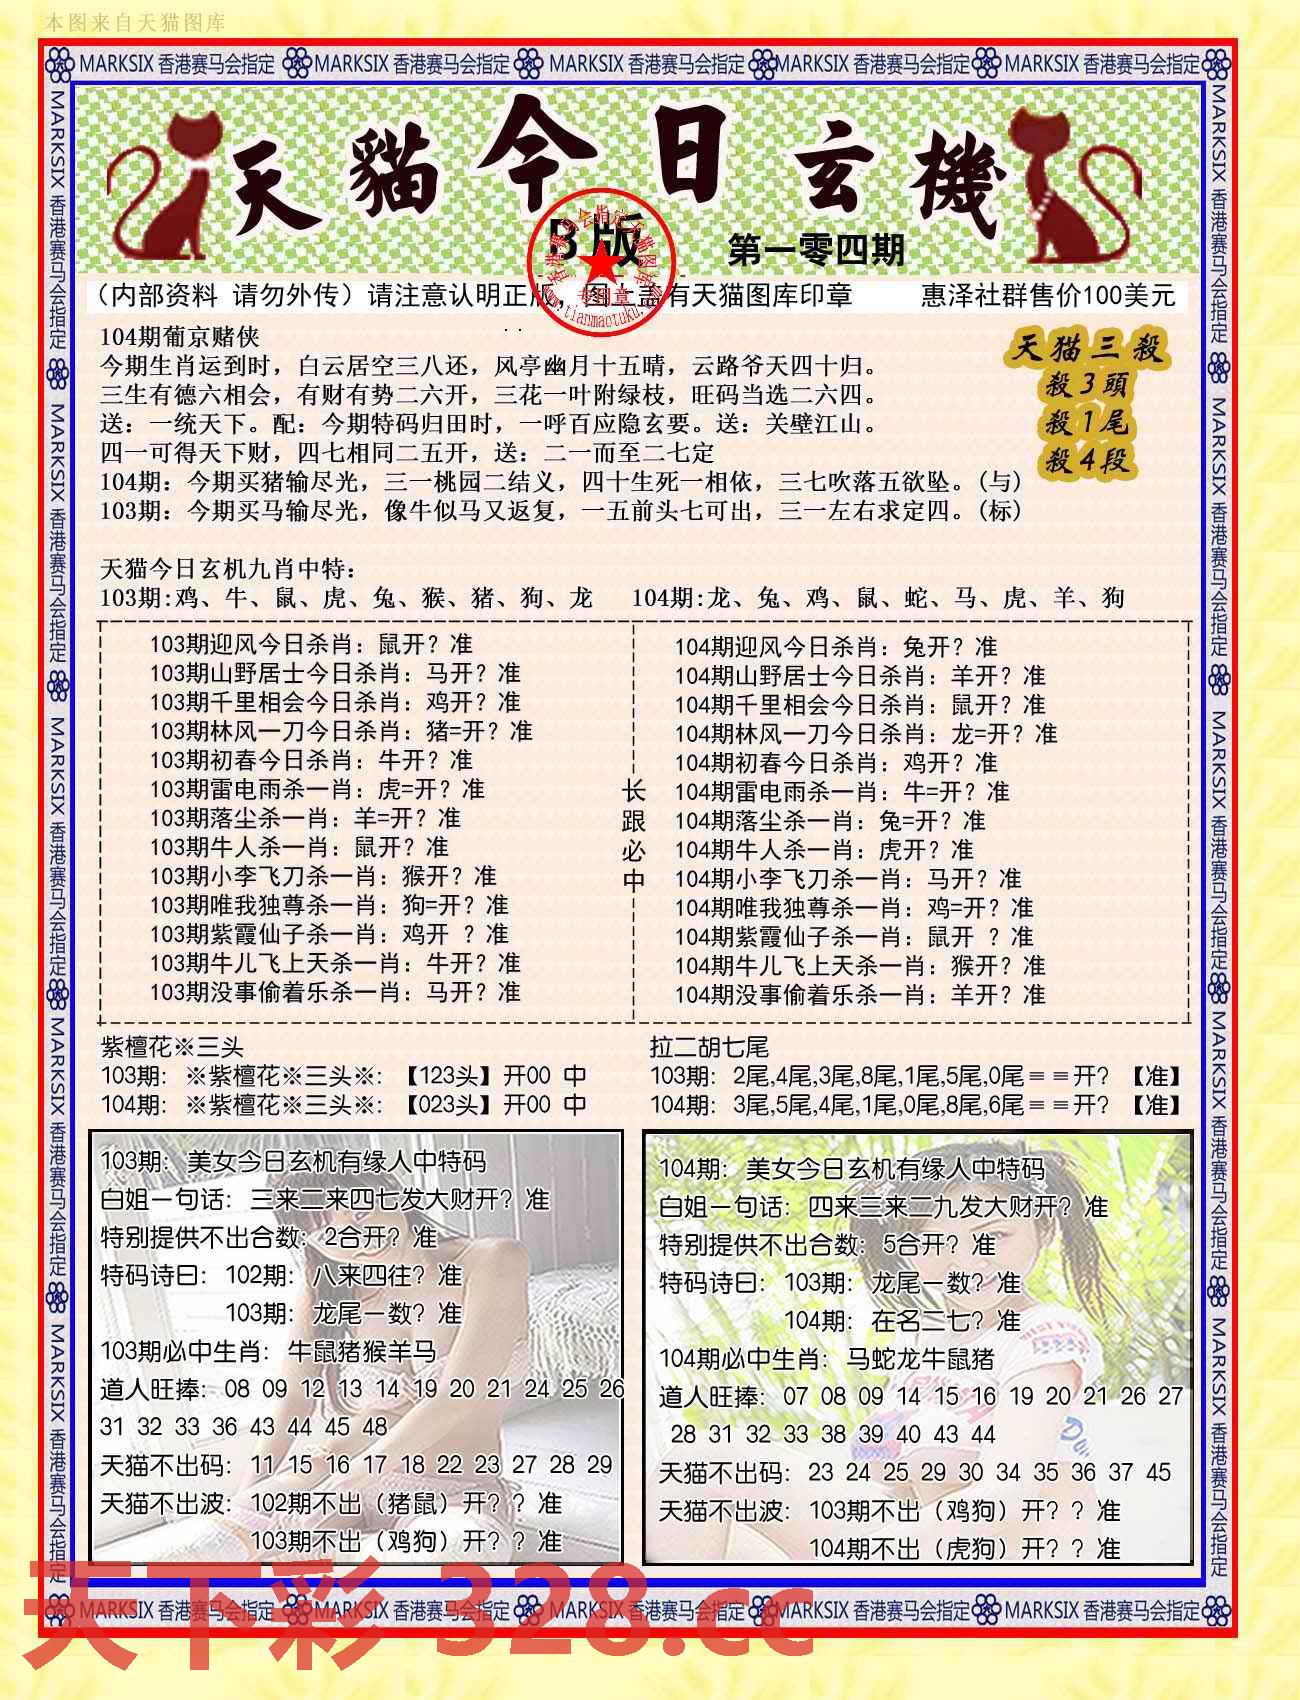 本图来自天猫图库
MARKSIX 香港赛马会指定 MARKSIX 香港赛马会指定 MARKSIX 香港赛马会指定 MARKSIX 香港赛马会指定 MARKSIX 香港赛马会指定
MARKSIX 香港赛马会指定 MARKSIX 香港赛马会指定 MARKSIX 香港赛马会指定 MARKSIX 香港赛马会指定 MARKSIX 香港赛马会指定
天貓今日玄機
B版
第一零四期
香港赛马会指定天猫图库
专用章
www.tianmaotuku.com
（内部资料 请勿外传）请注意认明正版，图上盖有天猫图库印章 惠泽社群售价100美元
104期葡京赌侠
今期生肖运到时，白云居空三八还，风亭幽月十五晴，云路爷天四十归。
三生有德六相会，有财有势二六开，三花一叶附绿枝，旺码当选二六四。
送：一统天下。配：今期特码归田时，一呼百应隐玄要。送：关壁江山。
四一可得天下财，四七相同二五开，送：二一而至二七定
104期：今期买猪输尽光，三一桃园二结义，四十生死一相依，三七吹落五欲坠。(与)
103期：今期买马输尽光，像牛似马又返复，一五前头七可出，三一左右求定四。(标)
天猫三殺
殺3頭
殺1尾
殺4段
天猫今日玄机九肖中特：
103期:鸡、牛、鼠、虎、兔、猴、猪、狗、龙 104期:龙、兔、鸡、鼠、蛇、马、虎、羊、狗
103期迎风今日杀肖：鼠开？准
103期山野居士今日杀肖：马开？准
103期千里相会今日杀肖：鸡开？准
103期林风一刀今日杀肖：猪=开？准
103期初春今日杀肖：牛开？准
103期雷电雨杀一肖：虎=开？准
103期落尘杀一肖：羊=开？准
103期牛人杀一肖：鼠开？准
103期小李飞刀杀一肖：猴开？准
103期唯我独尊杀一肖：狗=开？准
103期紫霞仙子杀一肖：鸡开 ？准
103期牛儿飞上天杀一肖：牛开？准
103期没事偷着乐杀一肖：马开？准
长跟必中
104期迎风今日杀肖：兔开？准
104期山野居士今日杀肖：羊开？准
104期千里相会今日杀肖：鼠开？准
104期林风一刀今日杀肖：龙=开？准
104期初春今日杀肖：鸡开？准
104期雷电雨杀一肖：牛=开？准
104期落尘杀一肖：兔=开？准
104期牛人杀一肖：虎开？准
104期小李飞刀杀一肖：马开？准
104期唯我独尊杀一肖：鸡=开？准
104期紫霞仙子杀一肖：鼠开 ？准
104期牛儿飞上天杀一肖：猴开？准
104期没事偷着乐杀一肖：羊开？准
紫檀花※三头
103期：※紫檀花※三头※：【123头】开00 中
104期：※紫檀花※三头※：【023头】开00 中
拉二胡七尾
103期：2尾,4尾,3尾,8尾,1尾,5尾,0尾＝＝开？【准】
104期：3尾,5尾,4尾,1尾,0尾,8尾,6尾＝＝开？【准】
103期：美女今日玄机有缘人中特码
白姐一句话：三来二来四七发大财开？准
特别提供不出合数：2合开？准
特码诗曰：102期：八来四往？准
103期：龙尾一数？准
103期必中生肖：牛鼠猪猴羊马
道人旺捧：08 09 12 13 14 19 20 21 24 25 26
31 32 33 36 43 44 45 48
天猫不出码：11 15 16 17 18 22 23 27 28 29
天猫不出波：102期不出（猪鼠）开？？准
103期不出（鸡狗）开？？准
104期：美女今日玄机有缘人中特码
白姐一句话：四来三来二九发大财开？准
特别提供不出合数：5合开？准
特码诗曰：103期：龙尾一数？准
104期：在名二七？准
104期必中生肖：马蛇龙牛鼠猪
道人旺捧：07 08 09 14 15 16 19 20 21 26 27
28 31 32 33 38 39 40 43 44
天猫不出码：23 24 25 29 30 34 35 36 37 45
天猫不出波：103期不出（鸡狗）开？？准
104期不出（虎狗）开？？准
MARKSIX 香港赛马会指定 MARKSIX 香港赛马会指定 MARKSIX 香港赛马会指定 MARKSIX 香港赛马会指定 MARKSIX 香港赛马会指定
MARKSIX 香港赛马会指定 MARKSIX 香港赛马会指定 MARKSIX 香港赛马会指定 MARKSIX 香港赛马会指定 MARKSIX 香港赛马会指定
天下彩 328.cc